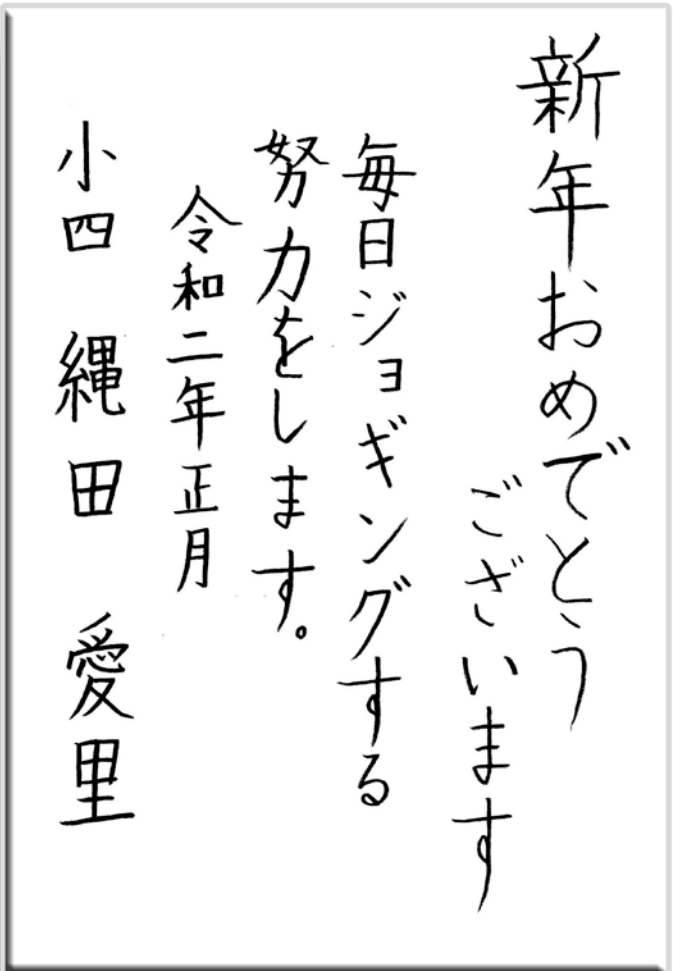 新年おめでとう
ございます
毎日ジョギングする
努力をします。
令和二年正月
小四 縄田 愛里